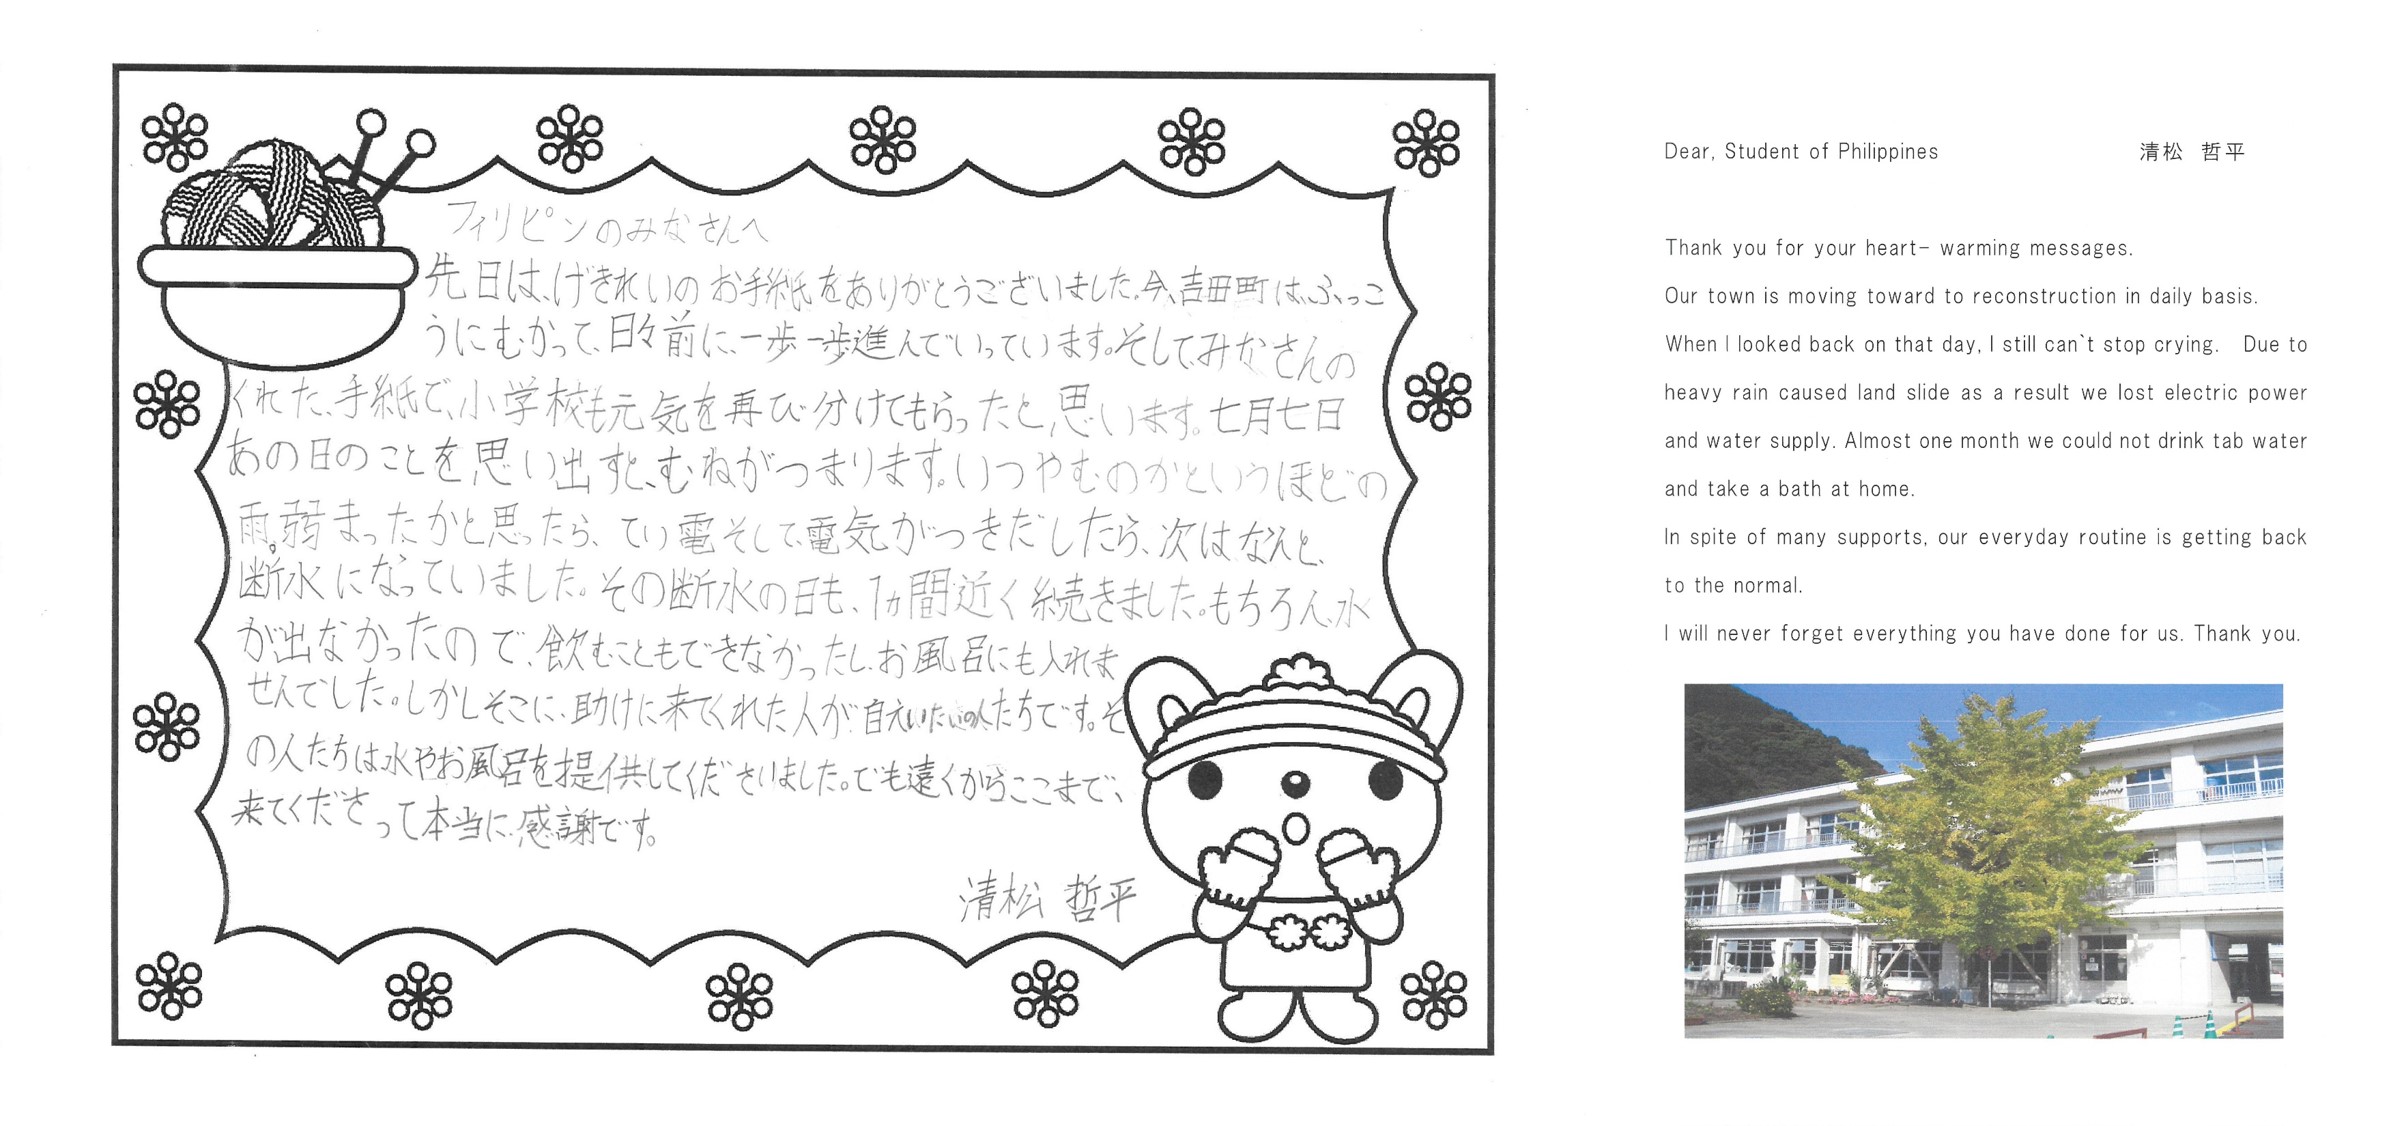 フィリピンのみなさんへ
先日は、げきれいのお手紙をありがとうございました。今、吉田町は、ふっこ
うにむかって、日々前に、一歩一歩進んでいっています。そして、みなさんの
くれた、手紙で、小学校も元気を再び分けてもらったと思います。七月七日
あの日のことを思い出すと、むねがつまります。いつやむのかというほどの
雨。弱まったかと思ったら、てい電そして、電気がつきだしたら、次はなんと、
断水になっていました。その断水の日も、1ヵ間近く続きました。もちろん、水
が出なかったので、飲むこともできなかったし、お風呂にも入れま
せんでした。しかしそこに、助けに来てくれた人が自えいたいの人たちです。そ
の人たちは水やお風呂を提供してくださいました。でも遠くからここまで、
来てくださって本当に感謝です。
清松 哲平
Dear, Student of Philippines 清松 哲平
Thank you for your heart- warming messages.
Our town is moving toward to reconstruction in daily basis.
When I looked back on that day, I still can`t stop crying. Due to
heavy rain caused land slide as a result we lost electric power
and water supply. Almost one month we could not drink tab water
and take a bath at home.
In spite of many supports, our everyday routine is getting back
to the normal.
I will never forget everything you have done for us. Thank you.